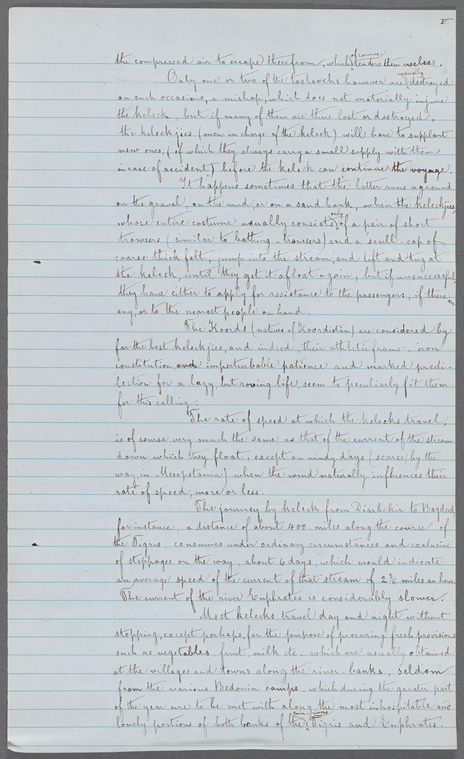 V
the compressed air to escape therefrom, which of course renders them useless.
Only one or two of the toolookhs however are usually destroyed
on such occasions, a mishap, which does not materially injure
the keleck, but if many of them are thus lost or destroyed,
the keleckjies (men in charge of the keleck) will have to supplant
new ones, (of which they always carry a small supply with them
in case of accident) before the keleck can continue the voyage.
It happens sometimes that the latter runs aground
on the gravel, on the mud, or on a sand bank, when the keleckjies,
whose entire costume usually consists only of a pair of short
trowsers (similar to bathing-trowsers) and a scull-cap of
coarse thick felt, jump into the stream, and lift and tug at
the keleck, until they get it afloat again, but if unsuccessful
they have either to apply for assistance to the passengers, if there are
any, or to the nearest people on hand.
The Koords (natives of Koordistan) are considered by
far the best keleckjies, and indeed, their athletic frame, iron
constitution and imperturbable patience and marked predi-
lection for a lazy, but roving life, seem to peculiarly fit them
for this calling.
The rate of speed at which the kelecks travel,
is of course very much the same as that of the current of the stream
down which they float, except on windy days (scarce by the
way, in Mesopotamia) when the wind naturally influences their
rate of speed, more or less.
The journey by keleck from Diarbekir to Bagdad
for instance, a distance of about 400 miles along the course of
the Tigris, consumes under ordinary circumstances and exclusive
of stoppages on the way, about 6 days, which would indicate
an average speed of the current of that stream of 2¾ miles an hour.
The current of the river Euphrates is considerably slower.
Most kelecks travel day and night without
stopping, except perhaps, for the purpose of procuring fresh provisions
such as vegetables, fruit, milk etc. which are usually obtained
at the villages and towns along the river-banks, seldom
from the various Bedouin camps, which during the greater part
of the year are to be met with along the most inhospitable and
lonely portions of both banks of the Tigris and Euphrates.